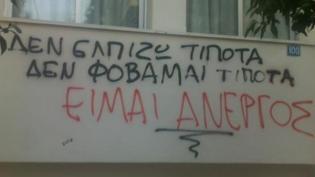 ΔΕΝ ΕΛΠΙΖΩ ΤΙΠΟΤΑ
ΔΕΝ ΦΟΒΑΜΑΙ ΤΙΠΟΤΑ
ΕΙΜΑΙ ΑΝΕΡΓΟΣ